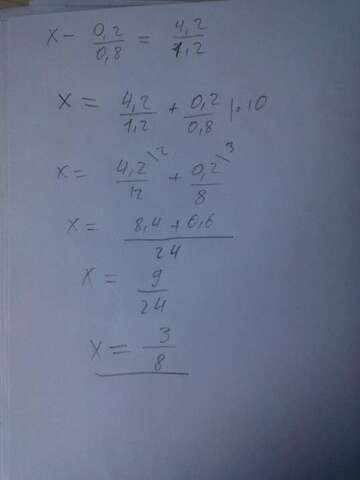 x - 0,2/0,8 = 4,2/1,2
x = 4,2/1,2 + 0,2/0,8 |·10
x = 4,2\2/12 + 0,2\3/8
x = 8,4 + 0,6/24
x = 9/24
x = 3/8